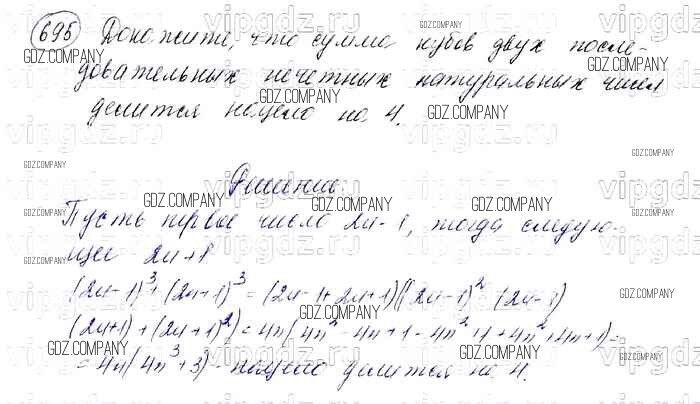 695 Докажите, что сумма кубов двух после-
довательных нечетных натуральных чисел
делится нацело на 4.
Решение.
Пусть первое число 2n-1, тогда следую-
щее 2n+1
(2n-1)³+(2n+1)³=(2n-1+2n+1)((2n-1)²-(2n-1)
(2n+1)+(2n+1)²)=4n(4n²-4n+1-4n²+1+4n²+4n+1)=
=4n(4n³+3) - нацело делится на 4.